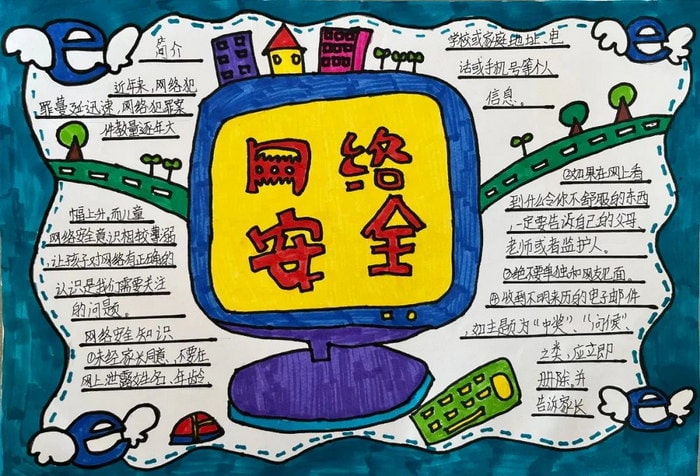 网络
安全
简介
近年来,网络犯
罪蔓延迅速,网络犯罪案
件数量逐年大
幅上升,而儿童
网络安全意识相较薄弱
,让孩子对网络有正确的
认识是我们需要关注
的问题。
网络安全知识
①未经家长同意、不要在
网上泄露姓名、年龄、
学校或家庭地址、电
话或手机号等个人
信息。
②如果在网上看
到什么令你不舒服的东西
,一定要告诉自己的父母、
老师或者监护人。
③绝不要单独和网友见面。
④收到不明来历的电子邮件
,如主题为“中奖”、“问候”、
之类,应立即
册除,并
告诉家长
e
e
e
e